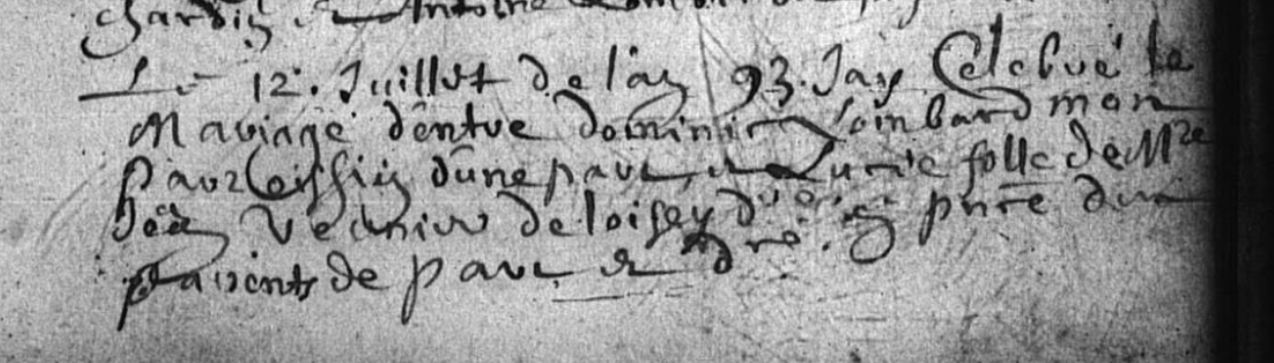 chardin. Antoine
Le 12. Juillet de l'an 93. Jay Celebré le
Mariage dentre dominic Lombard mon
Paroissien dune part et Lucie folle de Mre
Jean Vernier de loisey d'

 en pnce dun
parents de part et dre.